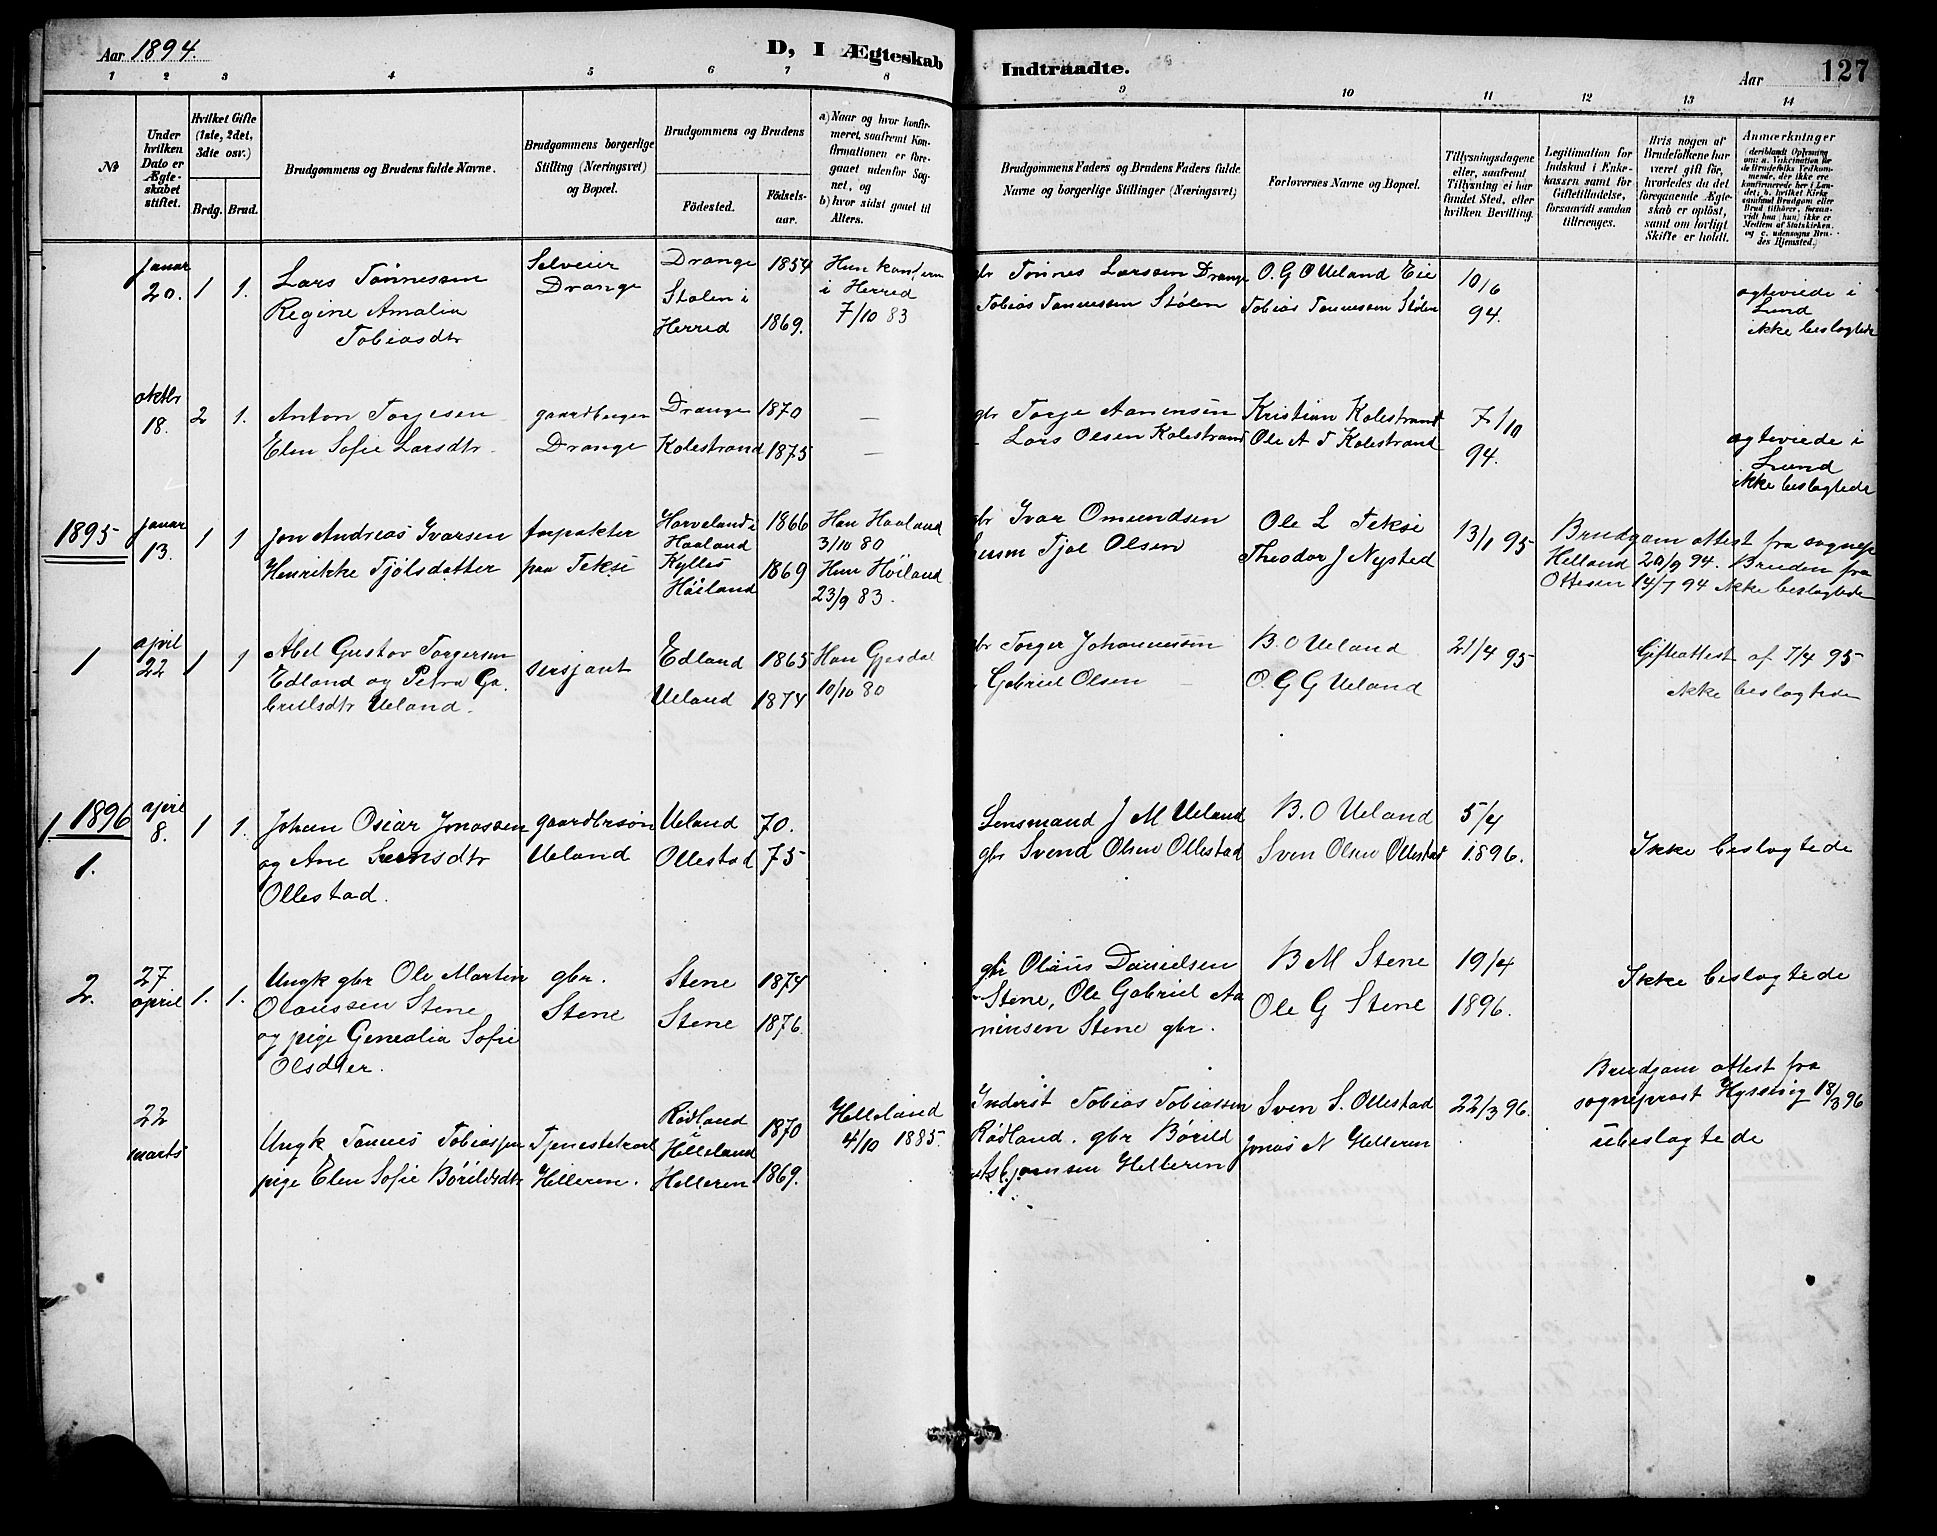 Aar 1894.
D, I Ægteskab
Indtraadte.
Aar
127
1 2 3 4 5 6 7 8 9 10 11 12 13 14
№
Under hvilken Dato er Ægteskabet stiftet.
Hvilket Gifte (1ste, 2det, 3dte osv.)
Brdg. Brud.
Brudgommens og Brudens fulde Navne.
Brudgommens borgerlige Stilling (Næringsvei) og Bopæl.
Brudgommens og Brudens
Födested.
Födselsaar.
a) Naar og hvor konfirmeret, saafremt Konfirmationen er foregaaet udenfor Sognet, og
b) hvor sidst gaaet til Alters.
Brudgommens Faders og Brudens Faders fulde Navne og borgerlige Stillinger (Næringsvei)
Forlovernes Navne og Bopæl.
Tillysningsdagene eller, saafremt Tillysning ei har fundet Sted, efter hvilken Bevilling.
Legitimation for Indskud i Enkekassen samt for Giftetilladelse, forsaavidt saadan tiltrænges.
Hvis nogen af Brudefolkene har været gift för, hvorledes da det foregaaende Ægteskab er oplöst, samt om lovligt Skifte er holdt.
Anmærkninger
Januar 20. 1 1.
Lars Tönnesen
Regine Amalia
Tobiasdtr
Selveier
Drange
Drange 1854
Stølen i
Herred 1869.
i Herred
7/10 83
gbr Tönnes Larssen Drange
Tobias Tønnessen Stølen
O. G O Ueland Eie
Tobias Tønnessen Stølen
10/6
94.
ægteviede i
Lund
ikke beslægtede
oktbr 18. 2 1.
Anton Torjesen
Elen Sofie Larsdtr.
Drange
Drange 1870 —
Kolestrand 1875 —
gbr Torje Aanensen
Lars Olsen Kolestrand
Kristian Kolestrand
Ole A T Kolestrand
7/10
94.
ægteviede i
Lund
ikke beslægtede
1895
Januar 13. 1 1
Jon Andreas Ivarsen
Henrikke Tjölsdatter
forpakter
paa Teksé
Haaland 1866
Kylles
Höiland 1869
Han Haaland
3/10 80
Hun Höiland
23/9 83.
gbr Ivar Omundsen
Tjøl Olsen
Ole L Tekse
Theodor J Nysted
13/1 95
Brudgom attest fra sognepr
Helland 20/9 94. Bruden fra
Ottesen 14/7 94 ikke beslægtede
1
april 22 1 1
Abel Gustav Torgersen
Edland og Petra Ga.
brielsdtr Ueland.
sersjant
Edland 1865
Ueland 1874
Han Gjesdal
10/10 80
gbr Torger Johannessen
Gabriel Olsen
B. O Ueland
O. G G Ueland
21/4 95
Gifteattest af 7/4 95
ikke beslægtede
1896
1.
april 8. 1 1.
Johan Oskar Jonassen
og Ane Svensdtr
Ollestad.
gaardbrsøn
Ueland
Ueland 70.
Ollestad 75
Lensmand J M Ueland
gbr Svend Olsen Ollestad
B. O Ueland
Sven Olsen Ollestad
5/4
1896.
Ikke beslægtede
2.
27 april 1. 1.
Ungk gbr Ole Martin
Olaussen Stene
og pige Genealia Sofie
Olsdtter.
gbr.
Stene
Stene 1874
Stene 1876.
gbr Olaus Danielsen
Stene, Ole Gabriel Aa
nensen Stene gbr.
B M Stene
Ole G Stene
19/4
1896.
Ikke beslægtede
22 marts
Ungk Tønnes Tobiassen
pige Elen Sofie Börildsdtr
Tjenestekarl
Helleren.
Rødland
Helleland 1870
Helleren 1869.
Helleland
4/10 1885.
Inderst Tobias Tobiassen
Rødland. gbr Börild
Helleren
Sven S. Ollestad
Jonas N Helleren
22/3 96.
Brudgom attest fra
sogneprest Hyssing 18/3 96
ubeslægtede